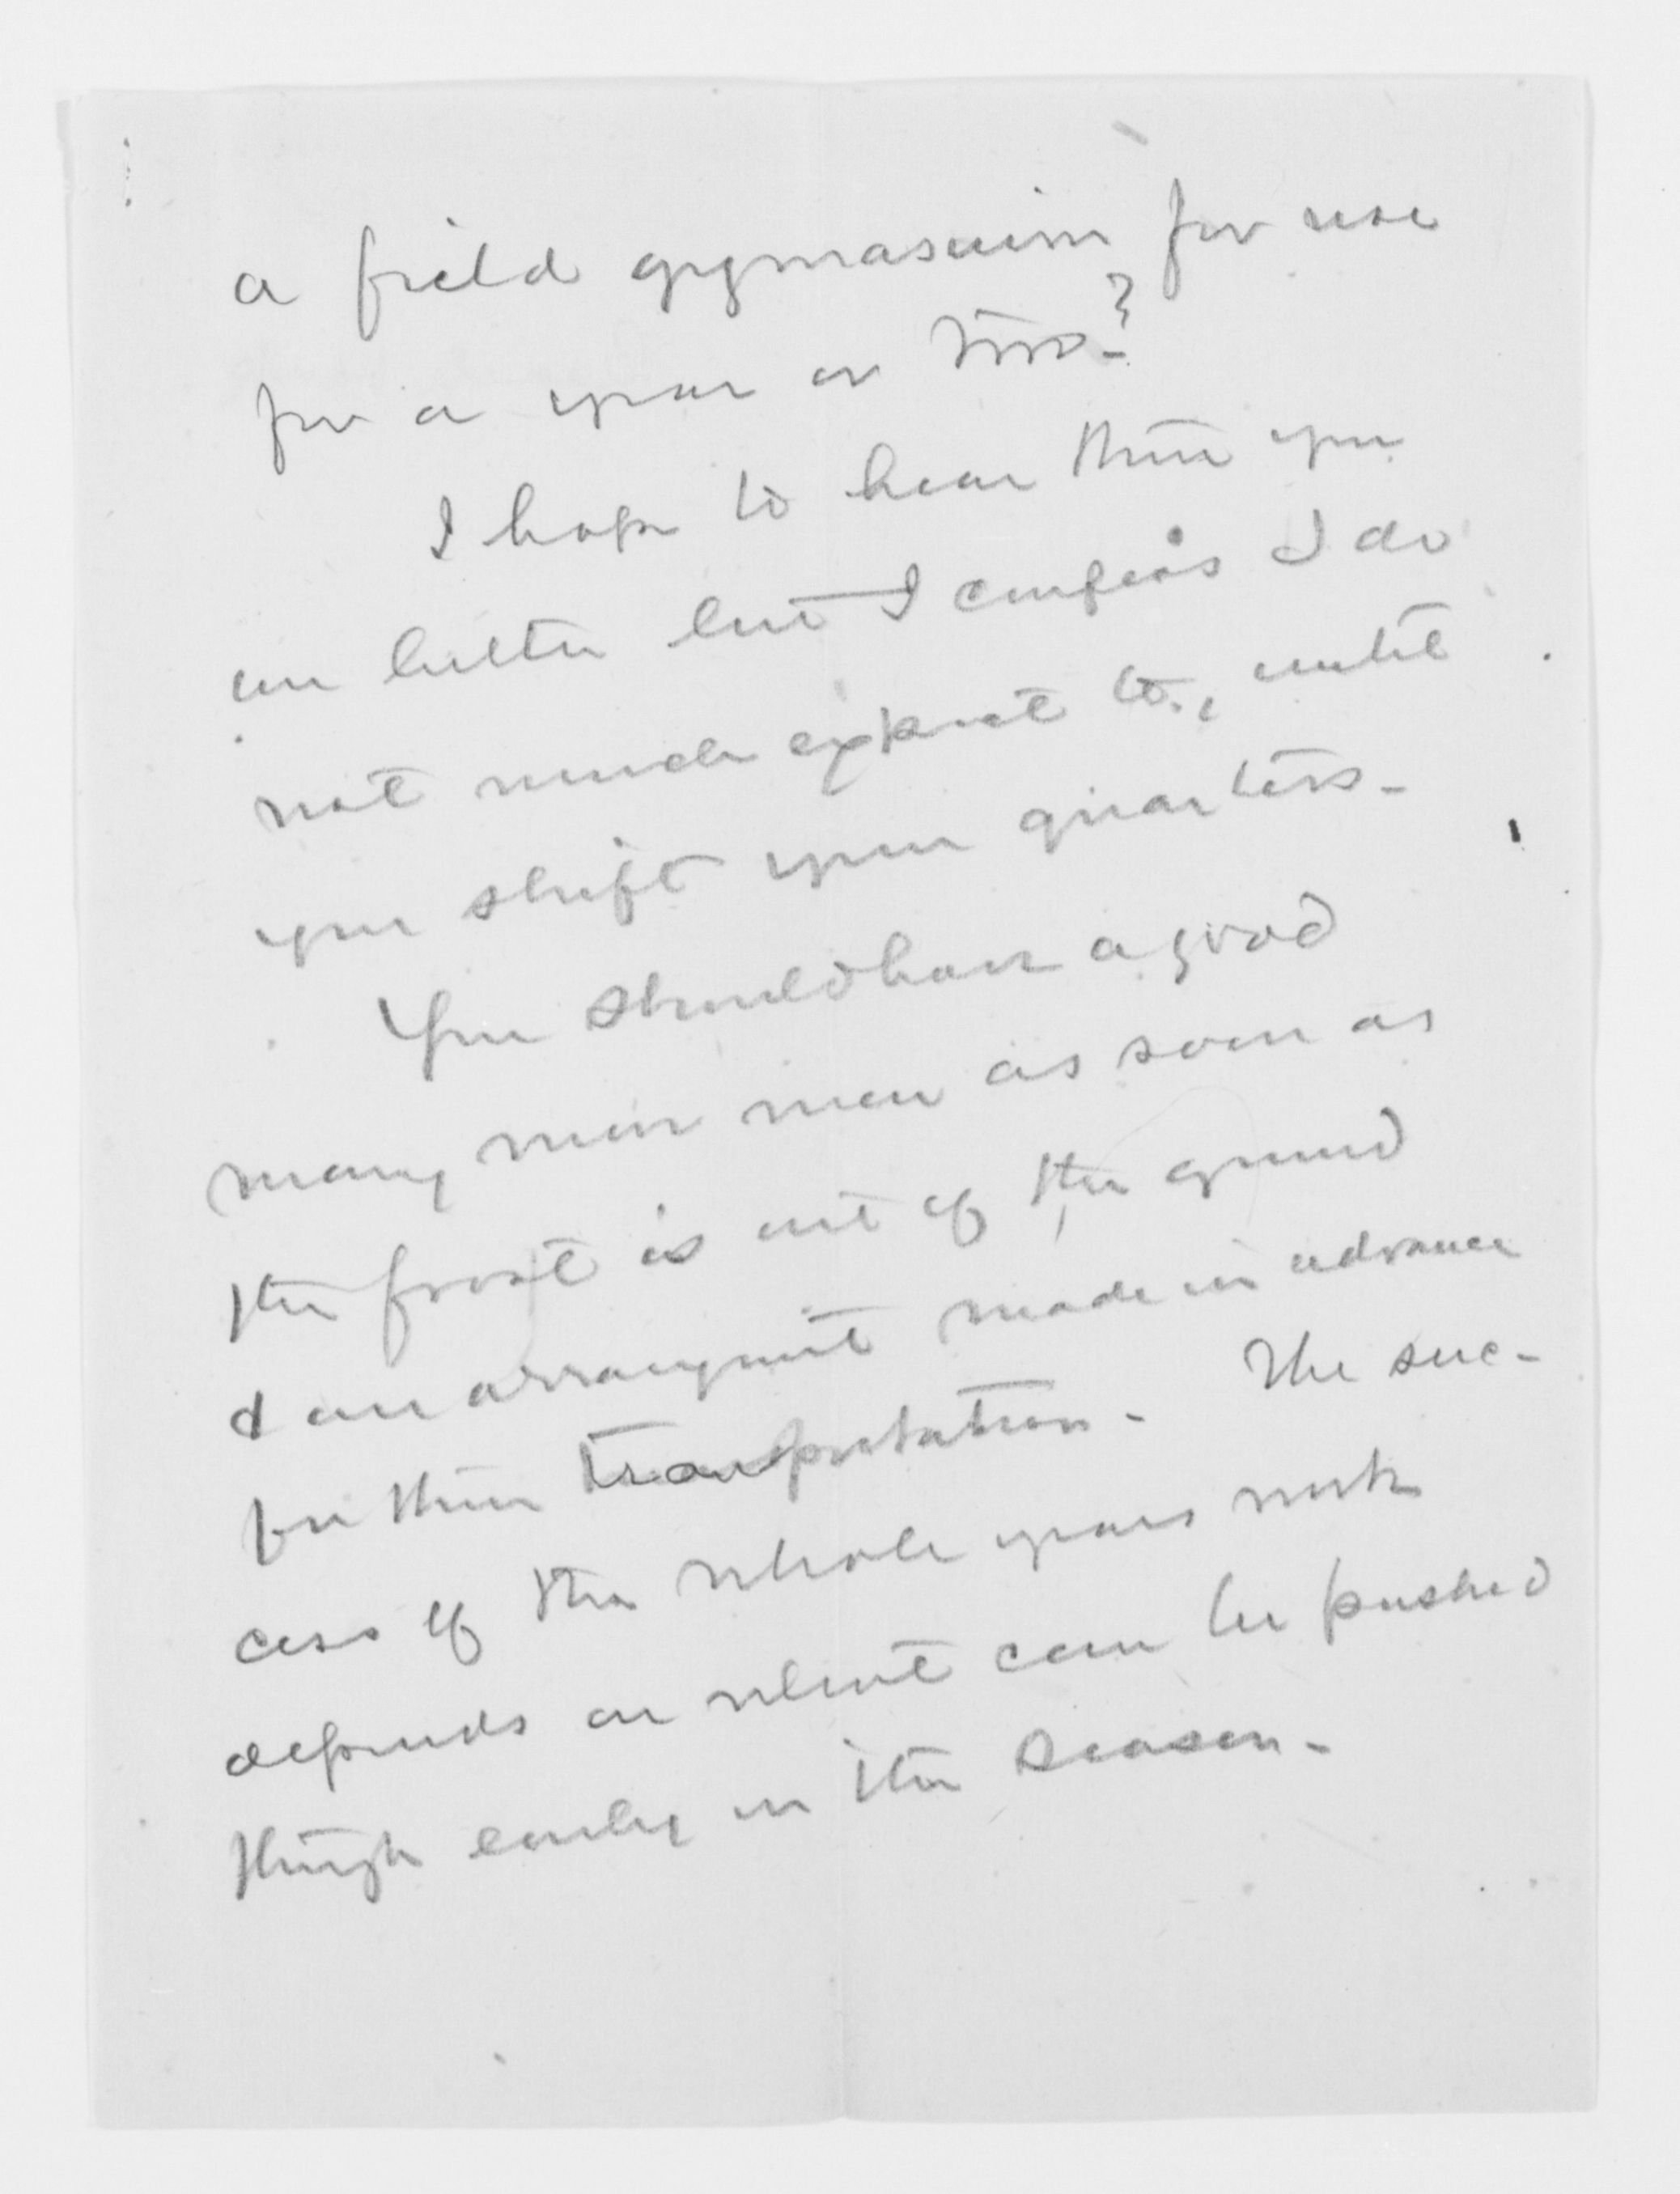 a field gymnasium for use
for a year or two?
I hope to hear that you
are better but I confess I do
not much expect to, until
you shift your quarters -
You should have a good
many more men as soon as
the frost is out of the ground
& an arrangement made in advance
for their transportation - The suc-
cess of the whole years work
depends on what can be pushed
through early in the season -